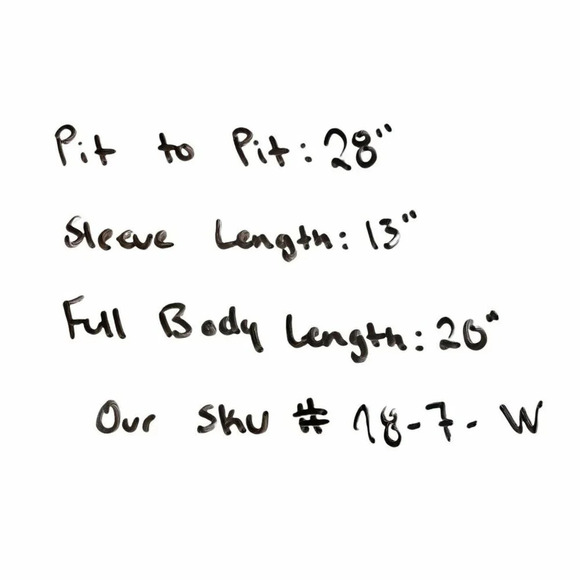 Pit to Pit: 28"
Sleeve Length: 13"
Full Body Length: 26"
Our SKU # 18-7-W